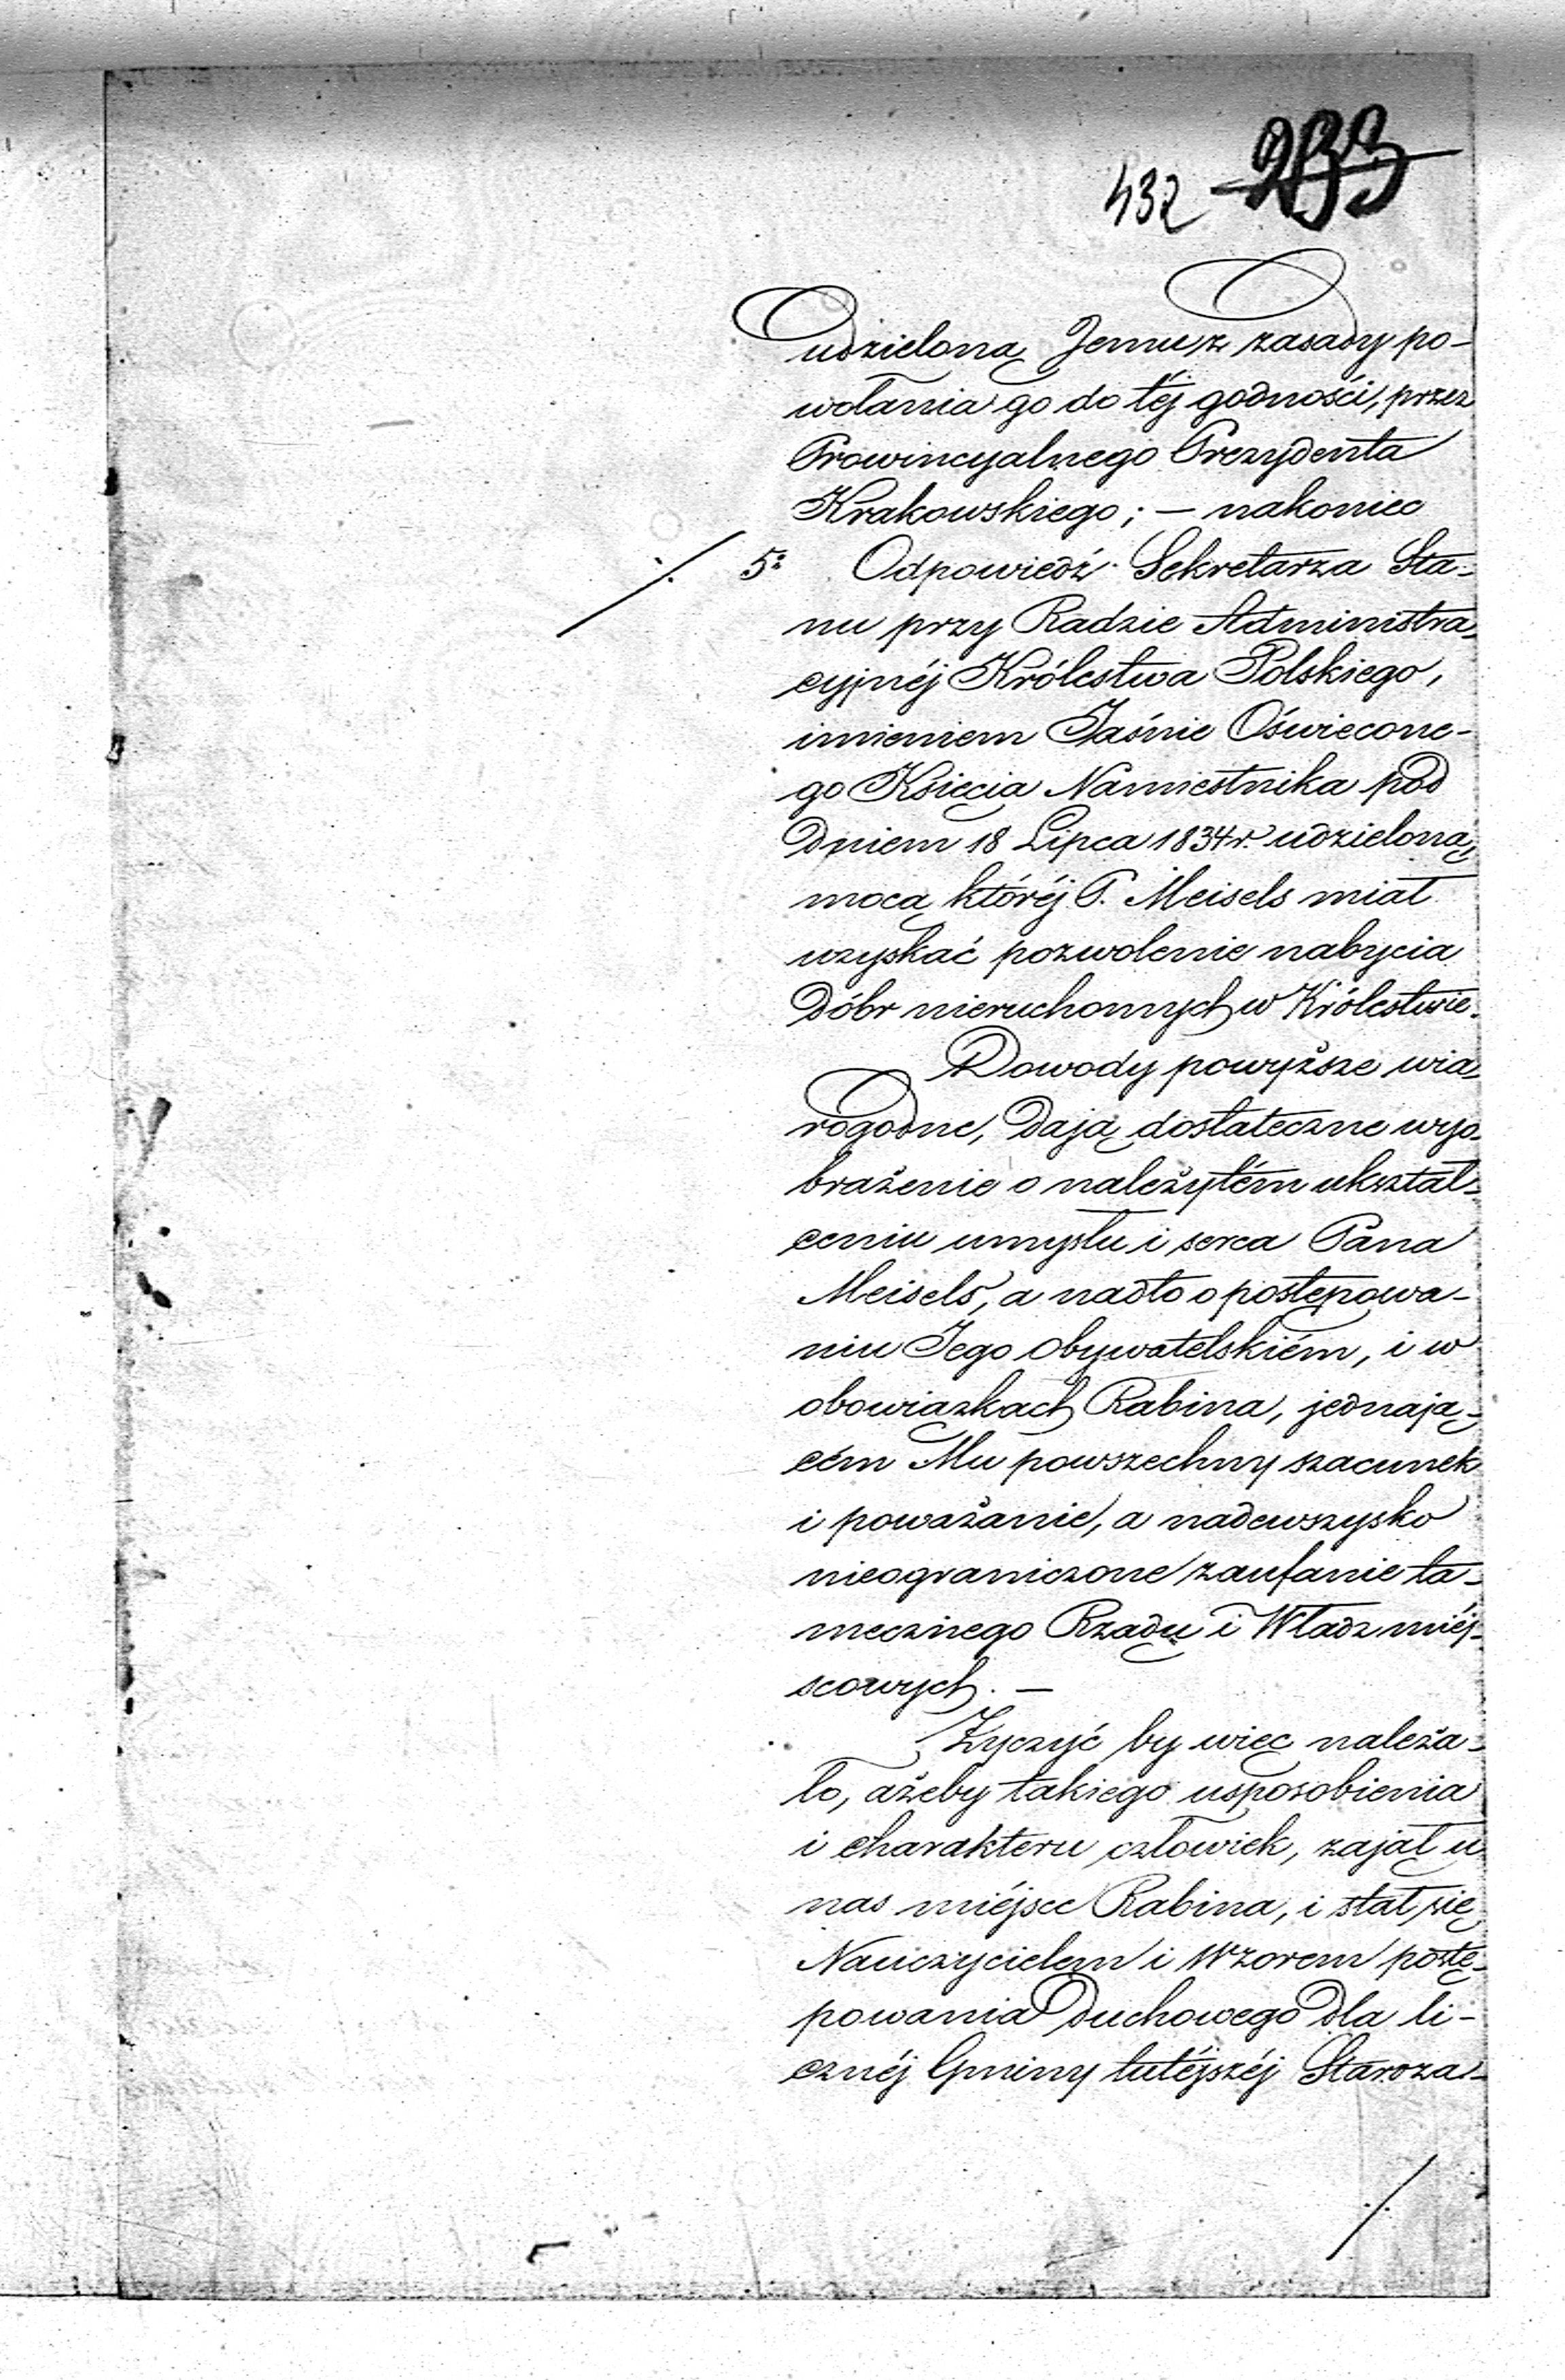 432 233
udzieloną Jemu z zasady po-
wołania go do téj godnośći, przez
Prowincyalnego Prezydenta
Krakowskiego; — nakoniec
./. 5: Odpowiedź Sekretarza Sta-
nu przy Radzie Administra-
cyjnéj Królestwa Polskiego,
imieniem Jaśnie Oświecone-
go Księcia Namiestnika pod
dniem 18 Lipca 1834 r. udzieloną,
mocą któréj P. Meisels miał
uzyskać pozwolenie nabycia
dóbr nieruchomych w Królestwie.
Dowody powyższe wia-
rogodne, dają dostateczne wyo-
brażenie o należytém ukształ-
ceniu umysłu i serca Pana
Meisels, a nadto o postępowa-
niu Jego obywatelskiém, i w
obowiązkach Rabina, jednają-
cém Mu powszechny szacunek
i poważanie, a nadewszysko
nieograniczone zaufanie ta-
mecznego Rządu i Władz miéj-
scowych. —
Życzyć by więc należa-
ło, ażeby takiego usposobienia
i charakteru człowiek, zajął u
nas miéjsce Rabina, i stał się
Nauczycielem i Wzorem postę-
powania duchowego dla li-
cznéj Gminy tutéjszéj Staroza-
./.